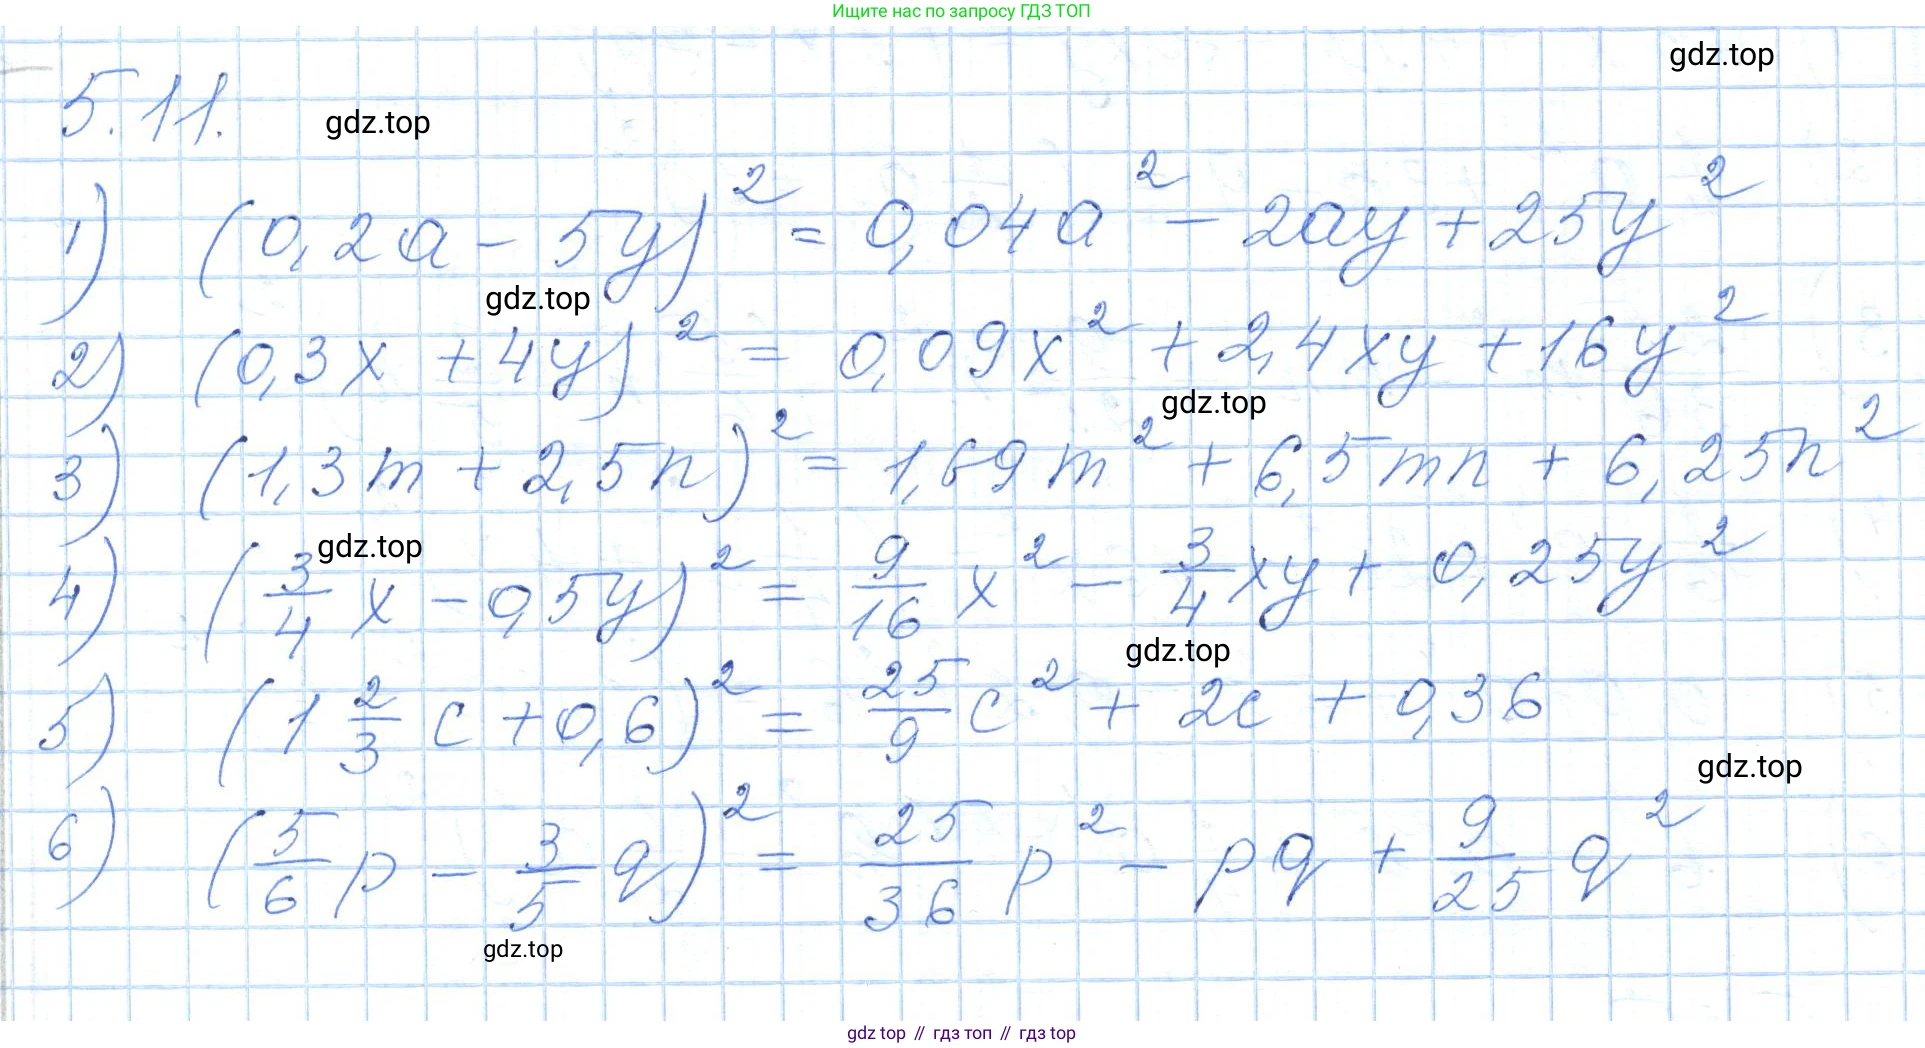 Ищите нас по запросу ГДЗ ТОП
gdz.top
5.11.
gdz.top
1) (0,2a - 5y)² = 0,04a² - 2ay + 25y²
gdz.top
2) (0,3x + 4y)² = 0,09x² + 2,4xy + 16y²
gdz.top
3) (1,3m + 2,5n)² = 1,69m² + 6,5mn + 6,25n²
gdz.top
4) (3/4 x - 0,5y)² = 9/16 x² - 3/4 xy + 0,25y²
gdz.top
5) (1 2/3 c + 0,6)² = 25/9 c² + 2c + 0,36
gdz.top
6) (5/6 p - 3/5 q)² = 25/36 p² - pq + 9/25 q²
gdz.top
gdz top // гдз топ // гдз top